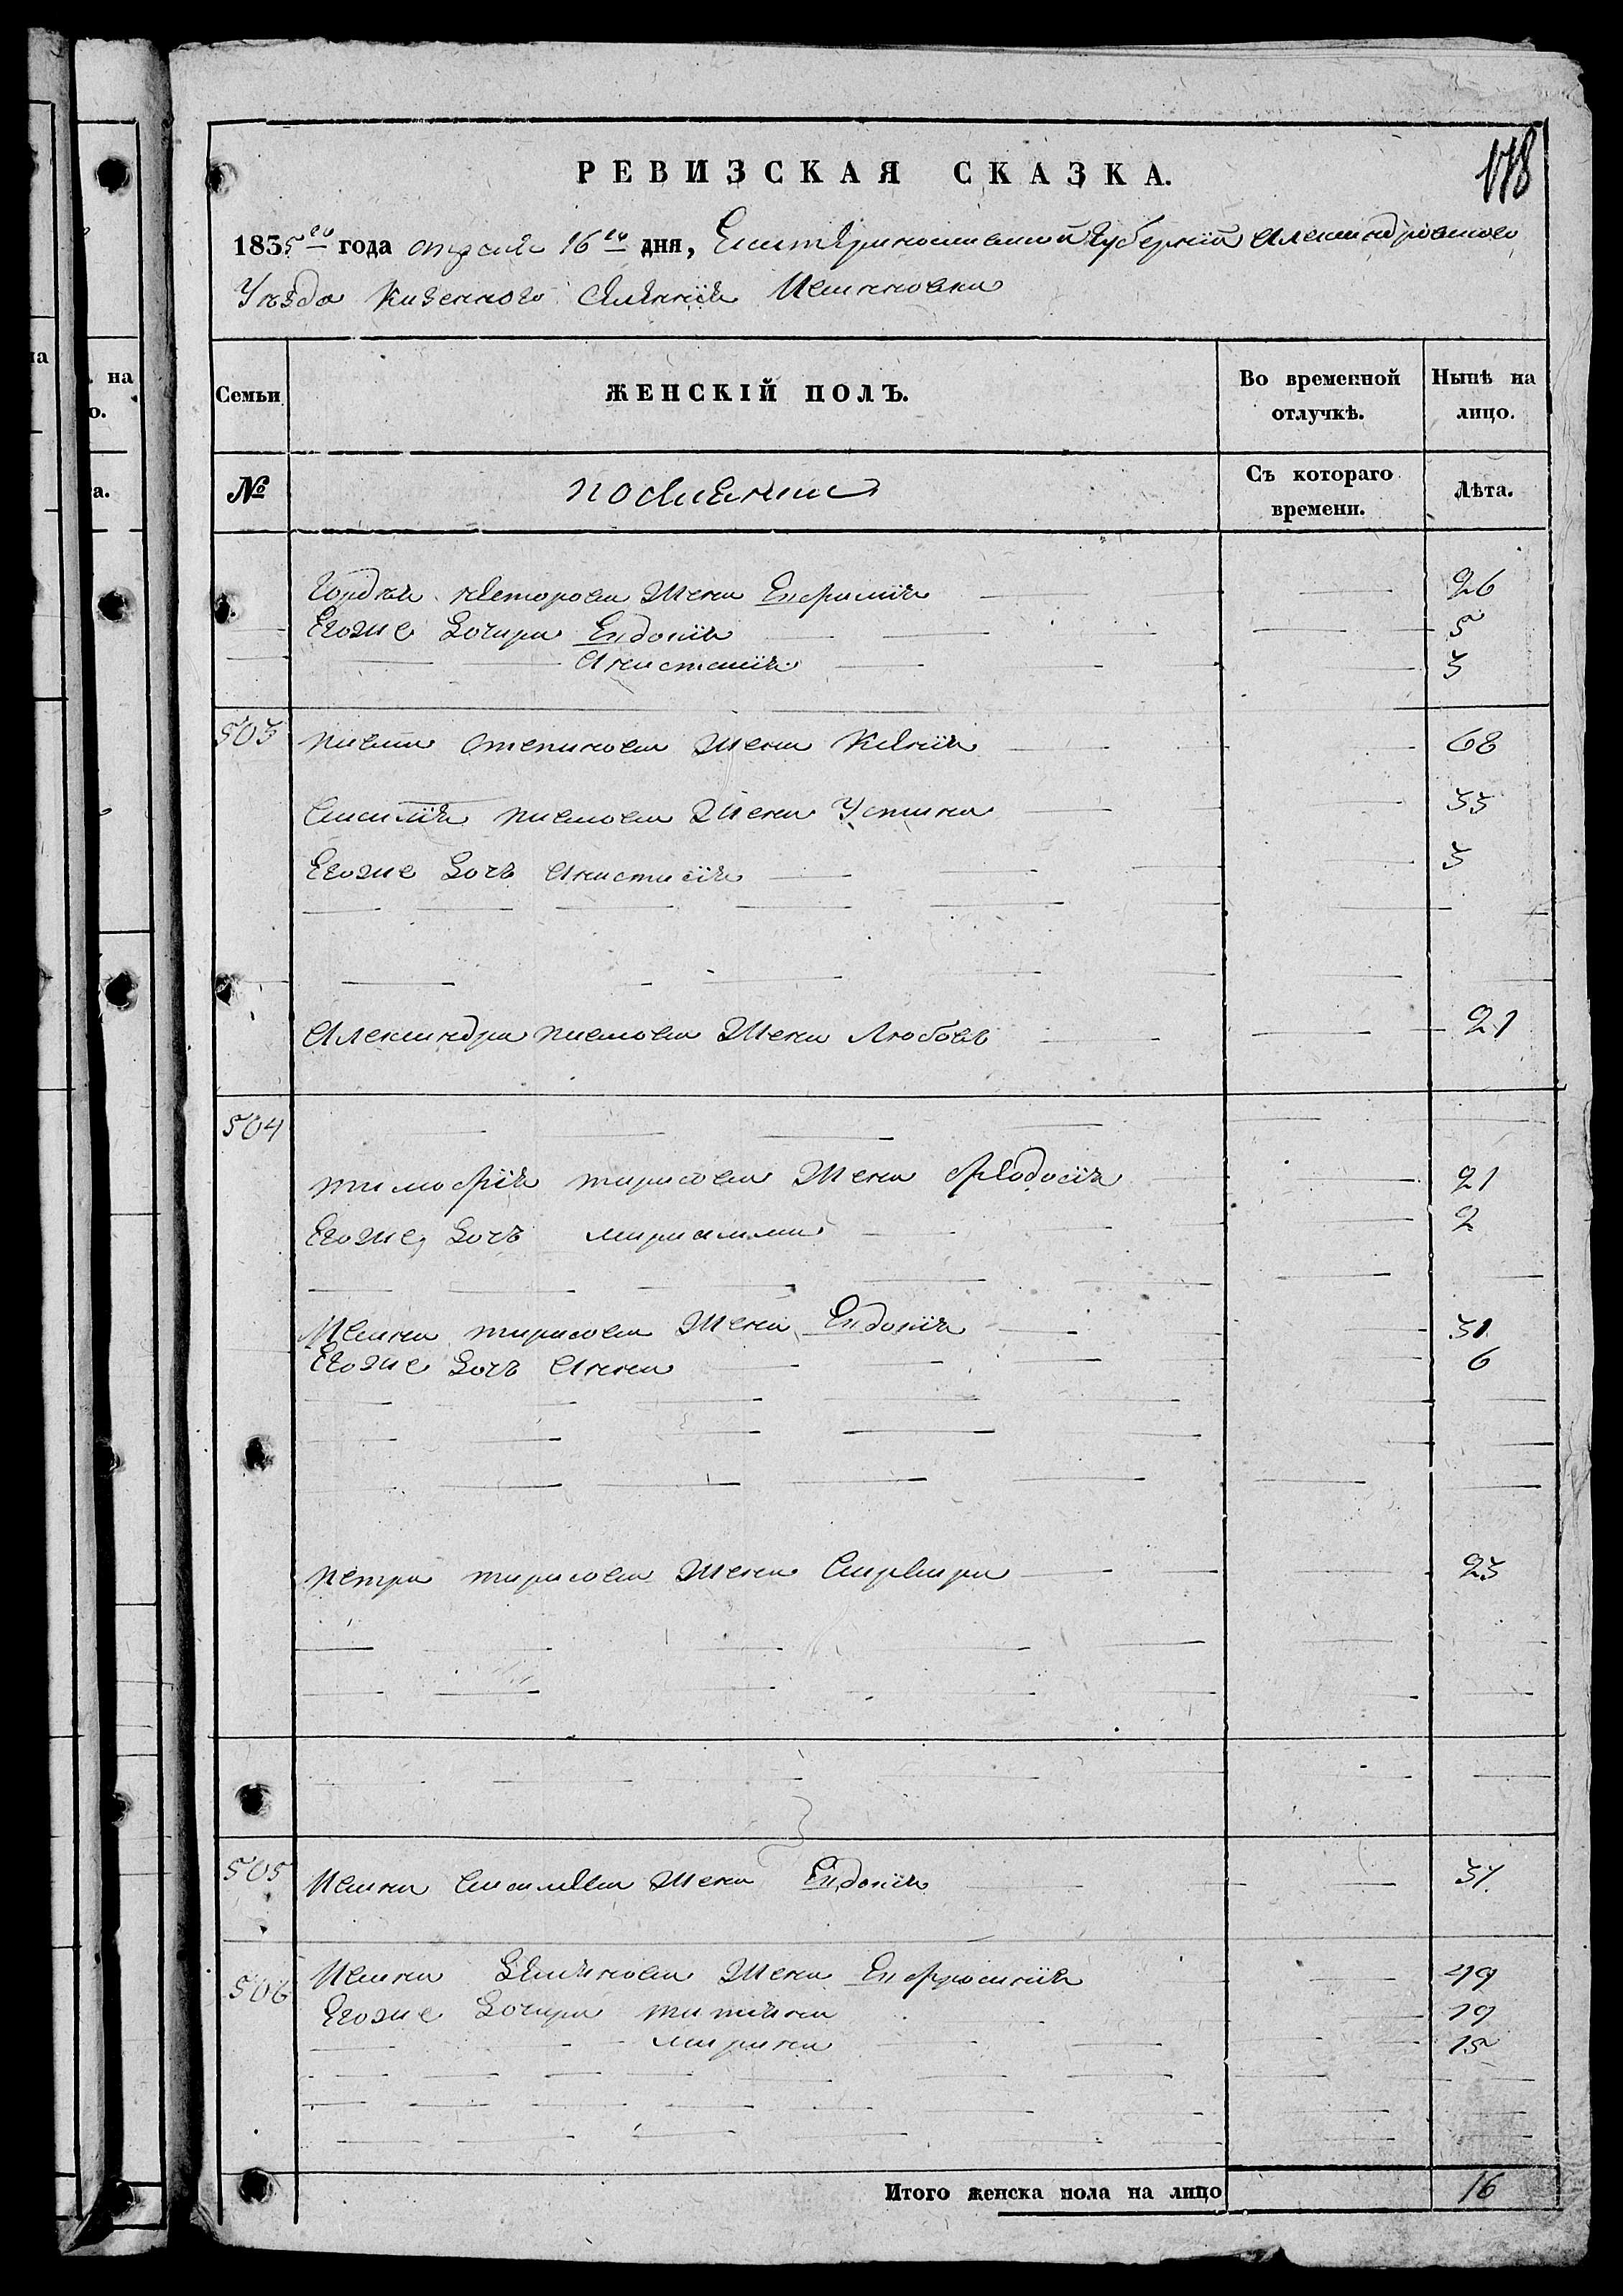 118
РЕВИЗСКАЯ СКАЗКА.
1835го года апреля 16го дня, Екатеринославской Губернїи Александровского
Уезда Казенного селенїя Ивановки
Семьи
ЖЕНСКІЙ ПОЛЪ.
Во временной отлучкѣ.
Нынѣ на лицо.
№
поселяне
Съ котораго времени.
Лѣта.
Гордея Несторова жена Евфимїя 26
Егоже дочери Евдокїя 5
Анастасїя 3
503 Павла Степанова жена Ксенїя 68
Василїя Павлова жена Устина 33
Егоже дочь Анастасїя 3
Александра Павлова жена Любовь 21
504
Тимофїя Тарасова жена Феодосїя 21
Егоже дочь 2
Ивана Тарасова жена Евдокїя 31
Егоже дочь Анна 6
Петра Тарасова жена Варвара 23
505 Ивана Василева жена Евдокїя 37
506 Ивана жена Евфросинїя 49
Егоже дочери Татїяна 19
Марина 15
Итого женска пола на лицо 16